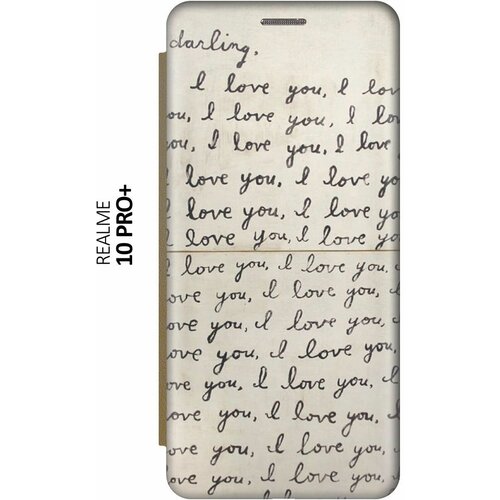 REALME
10 PRO+
darling,
I love you, I lov
ou, I love you, I lov
ou, I love you, I love
love you, I love yo
love you, I love yo
I love you, I love yo
I love you, I love you,
ove you, I love you, I
ove you, I love you, I
ove you, I love you, I
ove you, I love you, I
ove you, I love you, I
ove you, I love you,
ove you, I love you,